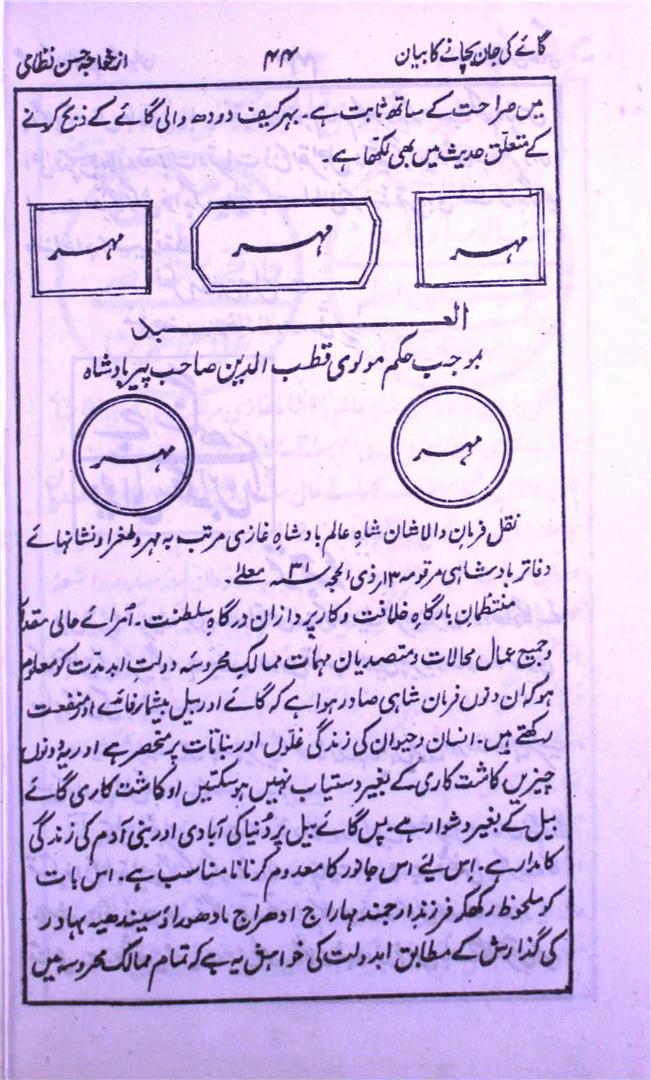 گائے کی جان بچانے کا بیان ۴۴ از خواجہ حسن نظامی
میں صراحت کے ساتھ ثابت ہے۔ بہر کیف دودھ والی گائے کے ذبح کرنے
کے متعلق حدیث میں بھی لکھا ہے۔
مہر مہر مہر
العبد
بموجب حکم مولوی قطب الدین صاحب پیر بادشاہ
مہر مہر
نقل فرمان والا شان شاہ عالم بادشاہ غازی مرتب بہ مہر و طغرا و نشانہائے
دفاتر بادشاہی مرقومہ ۱۳ ذی الحجہ ۳۱ معلےٰ۔
منتظمان بارگاہِ خلافت و کار پردازان درگاہِ سلطنت۔ اُمرائے عالی مقدار
و جمیع عمال محالات و متصدیان مہمات ممالک محروسہ دولت ابد مدت کو معلوم
ہو کہ ان دنوں فرمان شاہی صادر ہوا ہے کہ گائے اور بیل بیشمار فائدے اور منفعت
رکھتے ہیں۔ انسان و حیوان کی زندگی غلّوں اور نباتات پر منحصر ہے اور یہ دونوں
چیزیں کاشت کاری کے بغیر دستیاب نہیں ہو سکتیں او کاشت کاری گائے
بیل کے بغیر دشوار ہے۔ پس گائے بیل پر دُنیا کی آبادی اور بنی آدم کی زندگی
کا مدار ہے۔ اِس لئے اس جانور کا معدوم کرنا نامناسب ہے۔ اس بات
کو ملحوظ رکھکر فرزند ارجمند مہاراج ادھراج مادھوراؤ سیندھیہ بہادر
کی گذارش کے مطابق ابد دولت کی خواہش یہ ہے کہ تمام ممالک محروسہ میں